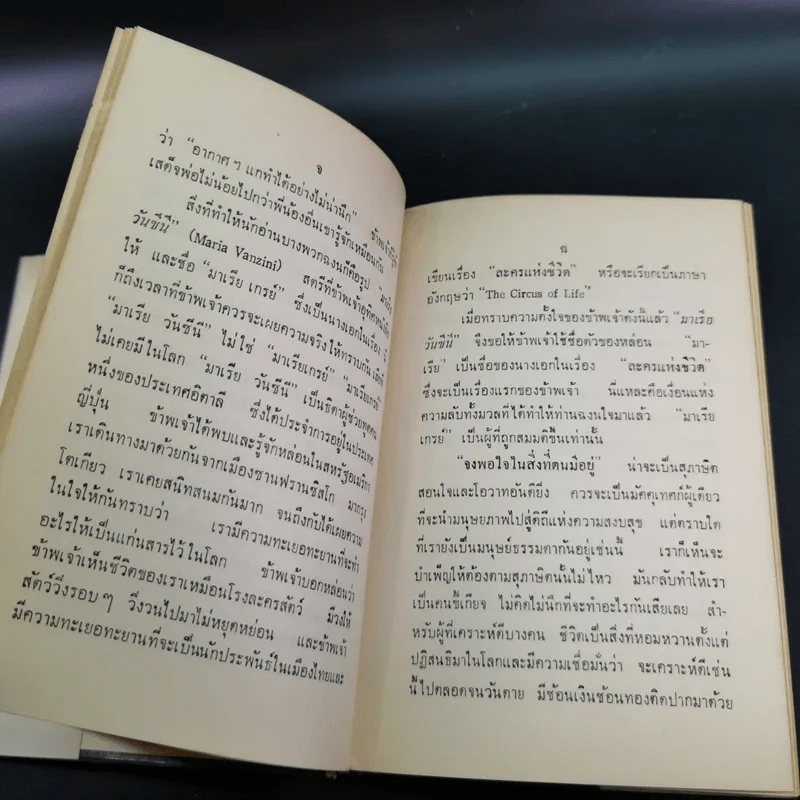 จ
ว่า “อากาศๆ แกทำได้อย่างไม่น่านึก”
เสด็จพ่อไม่น้อยไปกว่าพี่น้องอื่นเขารู้จักเหมือนกัน
สิ่งที่ทำให้นักอ่านบางพวกฉงนก็คือรูป
วันซีนี” (Maria Vanzini) สตรีที่ข้าพเจ้าอุทิศ
ให้ และชื่อ “มาเรีย เกรย์” ซึ่งเป็นนางเอกในเรื่อง
ก็ถึงเวลาที่ข้าพเจ้าควรจะเผยความจริงให้ทราบกัน
“มาเรีย วันซีนี” ไม่ใช่ “มาเรียเกรย์” “มาเรียเกรย์”
ไม่เคยมีในโลก “มาเรีย วันซีนี” เป็นธิดาผู้ช่วยทูต
หนึ่งของประเทศอิตาลี ซึ่งได้ประจำการอยู่ในประเทศ
ญี่ปุ่น ข้าพเจ้าได้พบและรู้จักหล่อนในสหรัฐอเมริกา
เราเดินทางมาด้วยกันจากเมืองซานฟรานซิสโก มากรุง
โตเกียว เราเคยสนิทสนมกันมาก จนถึงกับได้เผยความ
ในใจให้กันทราบว่า เรามีความทะเยอทะยานที่จะทำ
อะไรให้เป็นแก่นสารไว้ในโลก ข้าพเจ้าบอกหล่อนว่า
ข้าพเจ้าเห็นชีวิตของเราเหมือนโรงละครสัตว์ มีวงให้
สัตว์วิ่งรอบๆ วิ่งวนไปมาไม่หยุดหย่อน และข้าพเจ้า
มีความทะเยอทะยานที่จะเป็นนักประพันธ์ในเมืองไทยและ
ฉ
เขียนเรื่อง “ละครแห่งชีวิต” หรือจะเรียกเป็นภาษา
อังกฤษว่า “The Circus of Life”
เมื่อทราบความตั้งใจของข้าพเจ้าดังนี้แล้ว “มาเรีย
วันซีนี” จึงขอให้ข้าพเจ้าใช้ชื่อตัวของหล่อน “มา-
เรีย” เป็นชื่อของนางเอกในเรื่อง “ละครแห่งชีวิต”
ซึ่งจะเป็นเรื่องแรกของข้าพเจ้า นี่แหละคือเงื่อนแห่ง
ความลับทั้งมวลที่ได้ทำให้ท่านฉงนใจมาแล้ว “มาเรีย
เกรย์” เป็นผู้ที่ถูกสมมติขึ้นเท่านั้น
“จงพอใจในสิ่งที่ตนมีอยู่” น่าจะเป็นสุภาษิต
สอนใจและโอวาทอันดียิ่ง ควรจะเป็นมัคคุเทศก์ผู้เดียว
ที่จะนำมนุษยภาพไปสู่ดิถีแห่งความสงบสุข แต่ตราบใด
ที่เรายังเป็นมนุษย์ธรรมดากันอยู่เช่นนี้ เราก็เห็นจะ
บำเพ็ญให้ต้องตามสุภาษิตนั้นไม่ไหว มันกลับทำให้เรา
เป็นคนขี้เกียจ ไม่คิดไม่นึกที่จะทำอะไรกันเสียเลย สำ-
หรับผู้ที่เคราะห์ดีบางคน ชีวิตเป็นสิ่งที่หอมหวานตั้งแต่
ปฏิสนธิมาในโลกและมีความเชื่อมั่นว่า จะเคราะห์ดีเช่น
นี้ไปตลอดจนวันตาย มีช้อนเงินช้อนทองติดปากมาด้วย